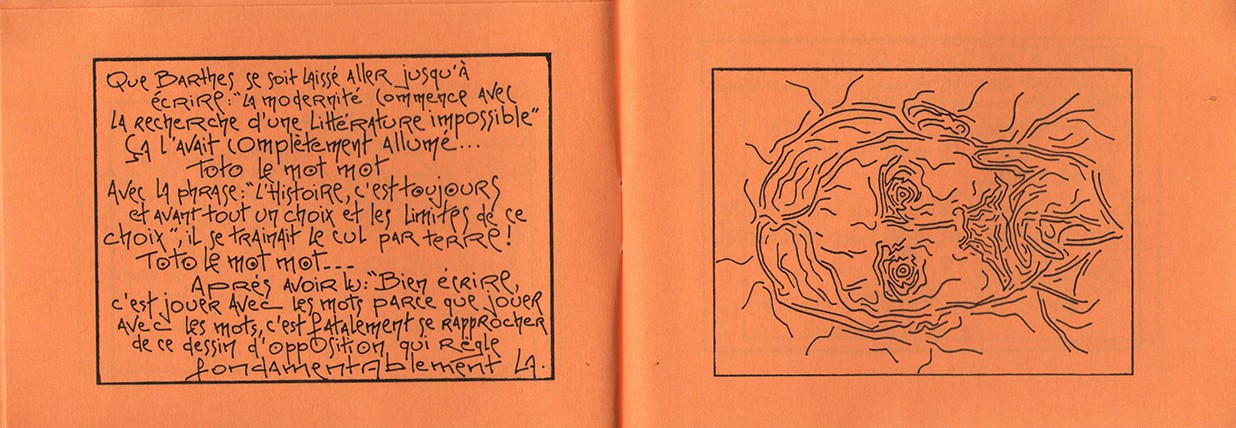 Que Barthes se soit laissé aller jusqu'à
écrire: "La modernité commence avec
la recherche d'une littérature impossible"
Ça l'avait complètement allumé...
Toto le mot mot
Avec la phrase: "L'Histoire, c'est toujours
et avant tout un choix et les limites de ce
choix", il se traînait le cul par terre!
Toto le mot mot...
Aprés avoir lu: "Bien écrire,
c'est jouer avec les mots parce que jouer
avec les mots, c'est fatalement se rapprocher
de ce dessin d'opposition qui règle
fondamentablement LA.